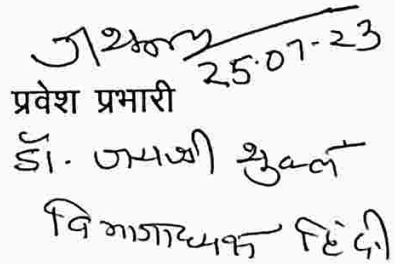 25.07.23
प्रवेश प्रभारी
डॉ. जयश्री शुक्ल
विभागाध्यक्ष हिंदी